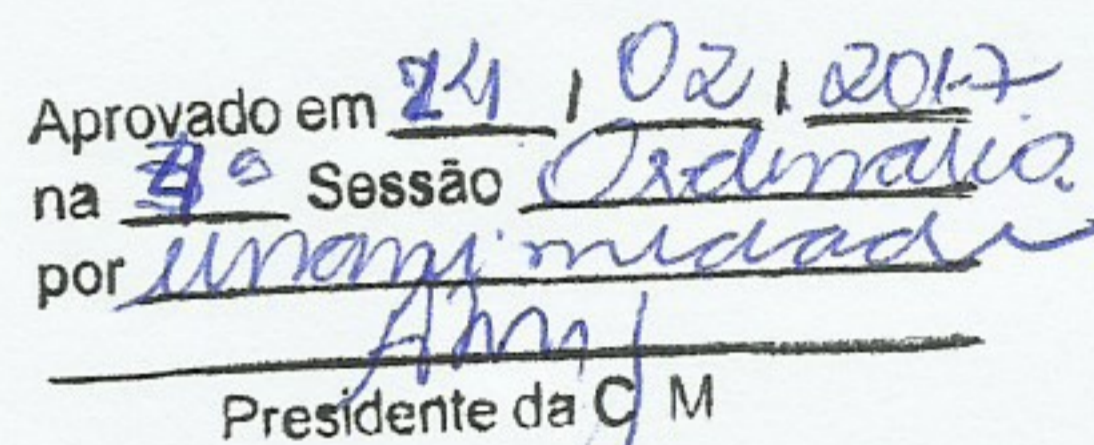 Aprovado em 24 / 02 / 2017
na Sessão Ordinária.
por unanimidade
Presidente da C M